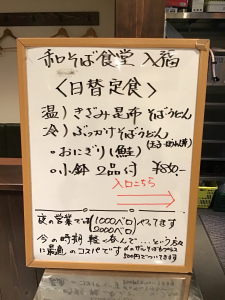 和そば食堂 入福
〈日替定食〉
温) きざみ昆布そばうどん
冷) ぶっかけそばうどん
・おにぎり(鮭)
・小鉢2品付 ¥850-
入口こちら
夜の営業では 1000ベロ やってます
2000ベロ
今の時期 軽く呑んで…という方々
に最適のコスパです
500円でついてます